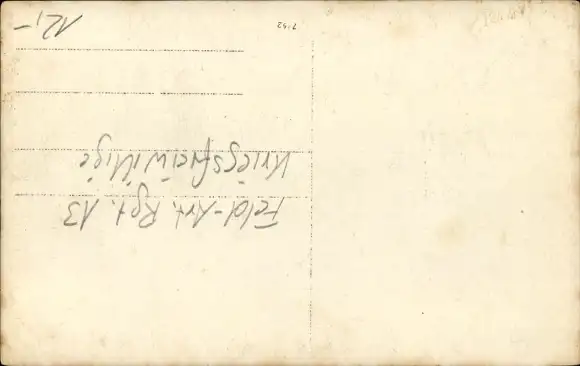 Feld-Art. Rgt. 13
Kriegsfreiwillige
12,-